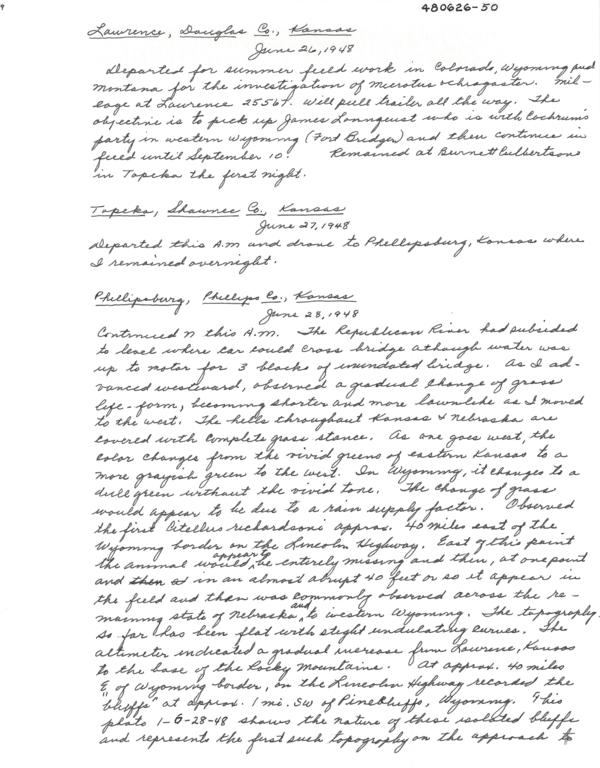 480626-50
Lawrence, Douglas Co., Kansas
June 26, 1948
Departed for summer field work in Colorado, Wyoming and
Montana for the investigation of Microtus ochrogaster. Mil-
eage at Lawrence 25567. Will pull trailer all the way. The
objective is to pick up James Lonnquist who is with Cochrum's
party in western Wyoming (Fort Bridger) and then continue in
field until September 10. Remained at Burnett Culbertsons
in Topeka the first night.
Topeka, Shawnee Co., Kansas
June 27, 1948
Departed this A.M and drove to Phillipsburg, Kansas where
I remained overnight.
Phillipsburg, Phillips Co., Kansas
June 28, 1948
Continued n this A.M. The Republican River had subsided
to level where car could cross bridge athough water was
up to motor for 3 blocks of inundated bridge. As I ad-
vanced westward, observed a gradual change of grass
life-form, becoming shorter and more lawnlike as I moved
to the west. The hills throughout Kansas & Nebraska are
covered with complete grass stance. As one goes west, the
color changes from the vivid greens of eastern Kansas to a
more grayish green to the west. In Wyoming, it changes to a
dull green without the vivid tone. The change of grass
would appear to be due to a rain supply factor. Observed
the first Citellus richardsoni approx. 40 miles east of the
Wyoming border on the Lincoln Highway. East of this point
the animal would appear to be entirely missing and then, at one point
and in an almost abrupt 40 feet or so it appear in
the field and then was commonly observed across the re-
maining state of Nebraska and to western Wyoming. The topography
so far has been flat with slight undulating curves. The
altimeter indicated a gradual increase from Lawrence, Kansas
to the base of the Rocky Mountains. At approx. 40 miles
E of Wyoming border, on the Lincoln Highway recorded the
"bluffs" at approx. 1 mi. SW of Pine Bluffs, Wyoming. This
photo 1-6-28-48 shows the nature of these isolated bluffs
and represents the first such topography on the approach to